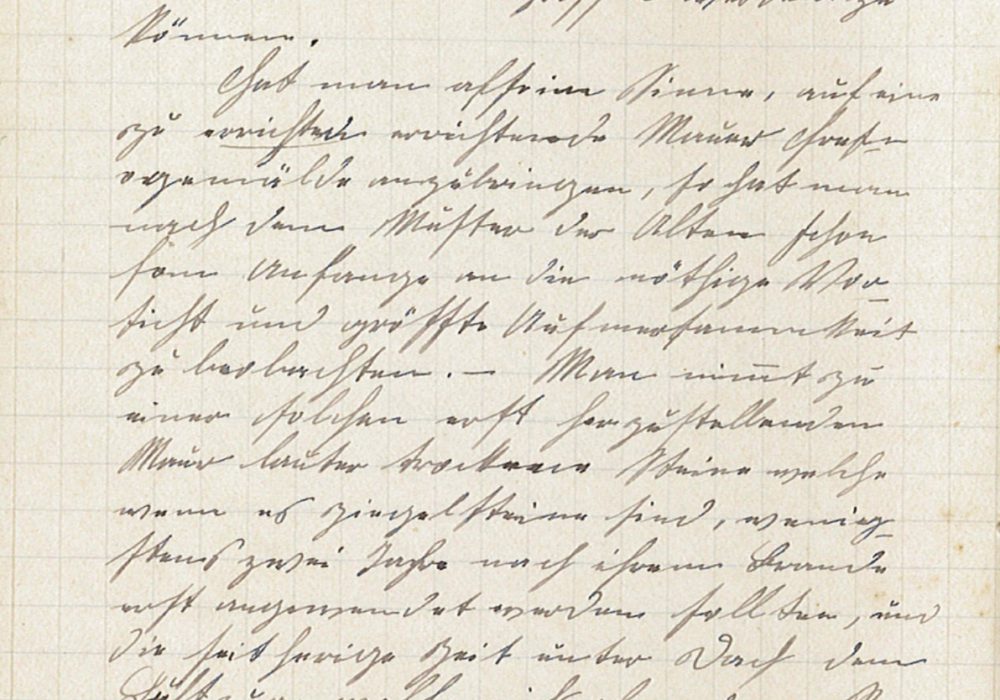 können.
Hat man also im Sinne, auf eine
zu errichten errichtende Mauer Fres-
ogemälde anzubringen, so hat man
nach dem Muster der Alten schon
fom Anfange an die nöthige Vor-
sicht und größte Aufmerksammkeit
zu beobachten. — Man nimmt zu
einer solchen erst herzustellenden
Maur lauter trockene Steine welche
wenn es ziegelsteine sind, wenig-
stens zwei Jahre nach ihrem Brande
erst angewendet werden sollten, und
die seitherige Zeit unter Dach dem